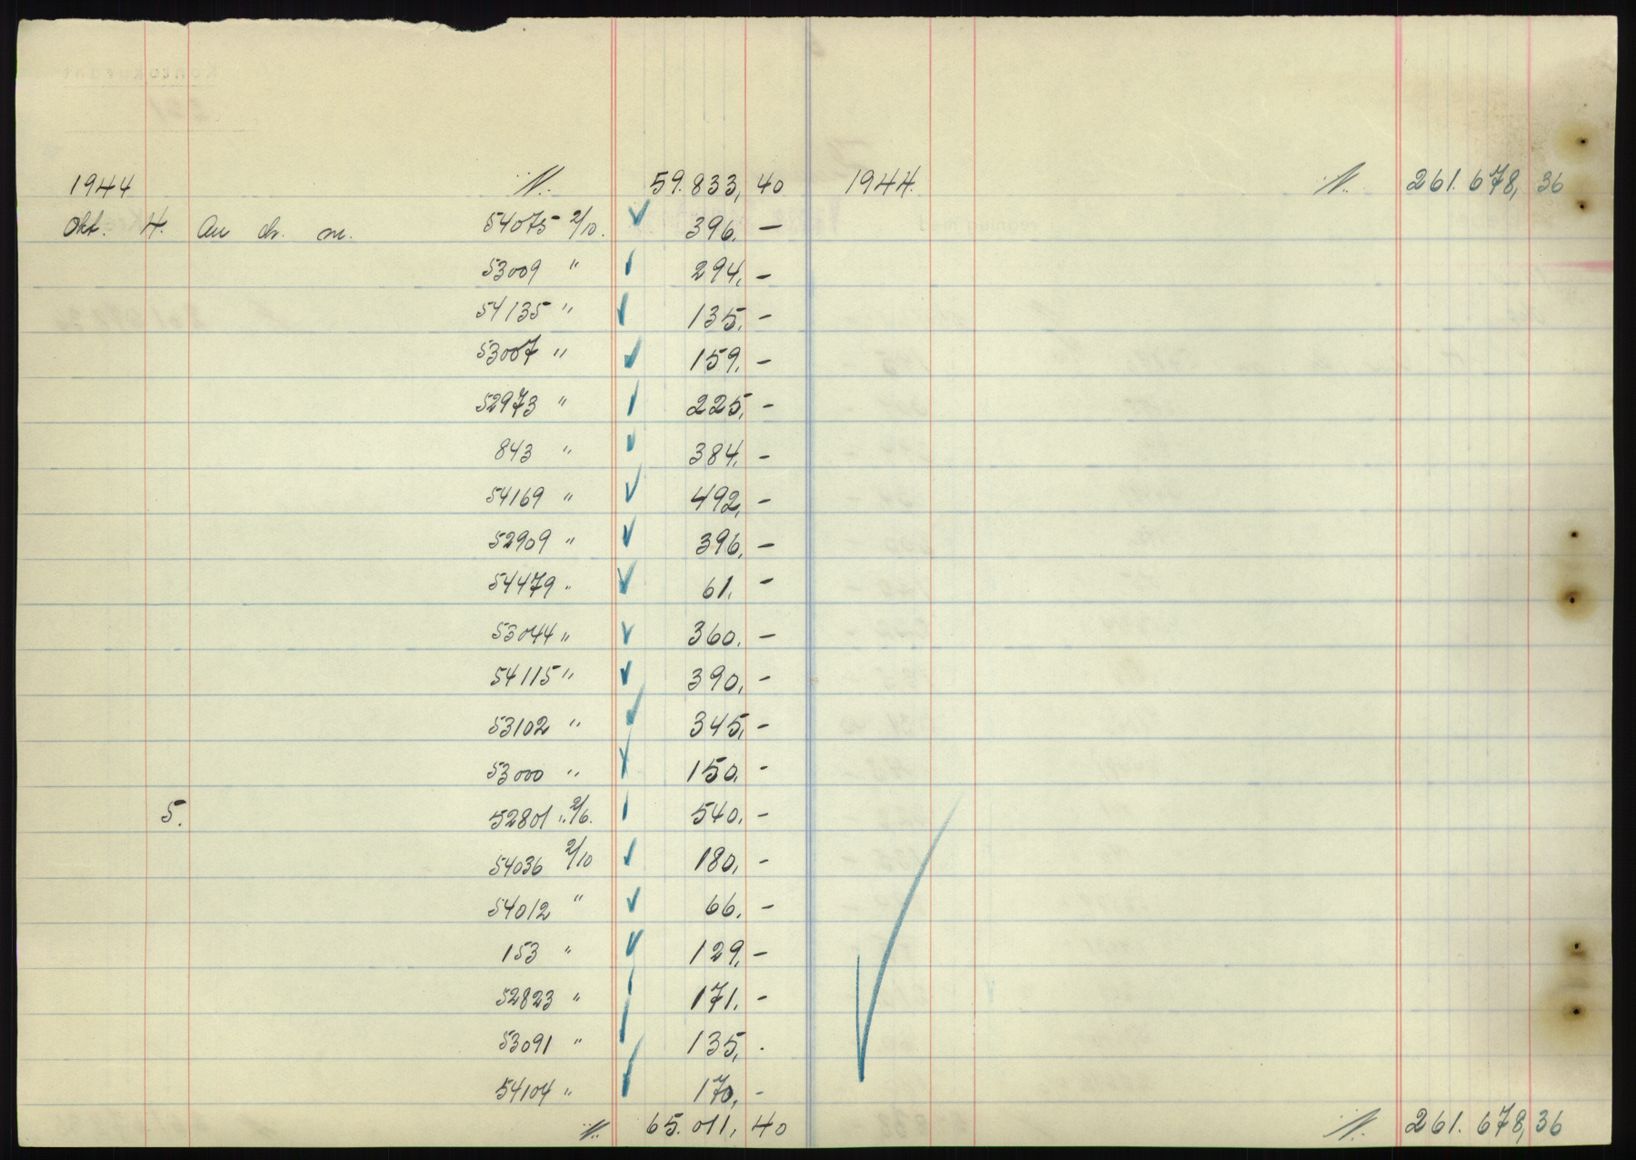 1944 N. 59.833,40 1944. N. 261.678,36
Okt. 4. An dr. m. 54075 2/10. 396,—
53009 " 294,—
54135 " 135,—
53007 " 159,—
52973 " 225,—
843 " 384,—
54169 " 492,—
52909 " 396,—
54479 " 61,—
53044 " 360,—
54115 " 390,—
53102 " 345,—
53000 " 150,-
5. 52801 " 2/6. 540,—
54036 2/10 180,-
54012 " 66,—
153 " 129,—
52823 " 171,-
53091 " 135,.
54104 " 170,-
N. 65.011,40 N. 261.678,36